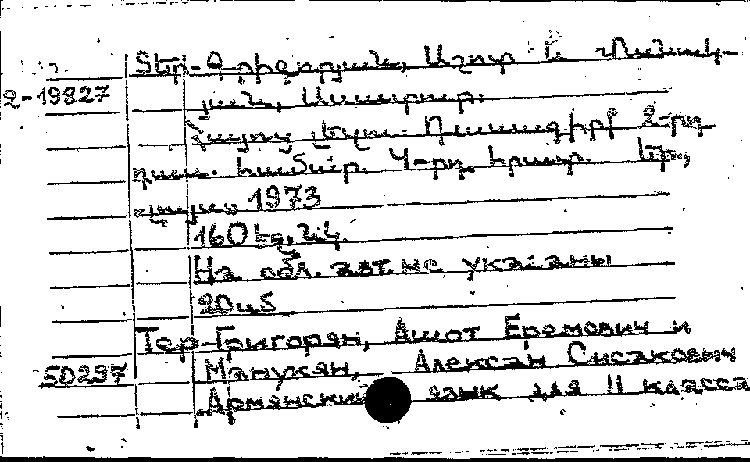 Տեր-Գրիգորյան, Աշոտ և Մանուկ-
2-19827 յան,
Հայոց լեզու. Դասագիրք 2-րդ
դաս. համար. 4-րդ հրատ. Եր.,
1973
160 էջ, նկ.
На обл. авт. не указаны
Тер-Григорян, Ашот Еремович и
50297 Манукян, Алексан Сисакович
Армянский язык для II класса